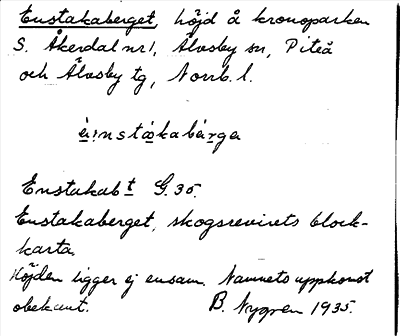 Enstakaberget, höjd å kronoparken
S. Åkerdal nr 1, Älvsby sn, Piteå
och Älvsby tg, Norrb. l.
Enstakabt G. 35.
Enstakaberget, skogsrevirets block-
karta.
Höjden ligger ej ensam. Namnets uppkomst
obekant. B. Nygren 1935.